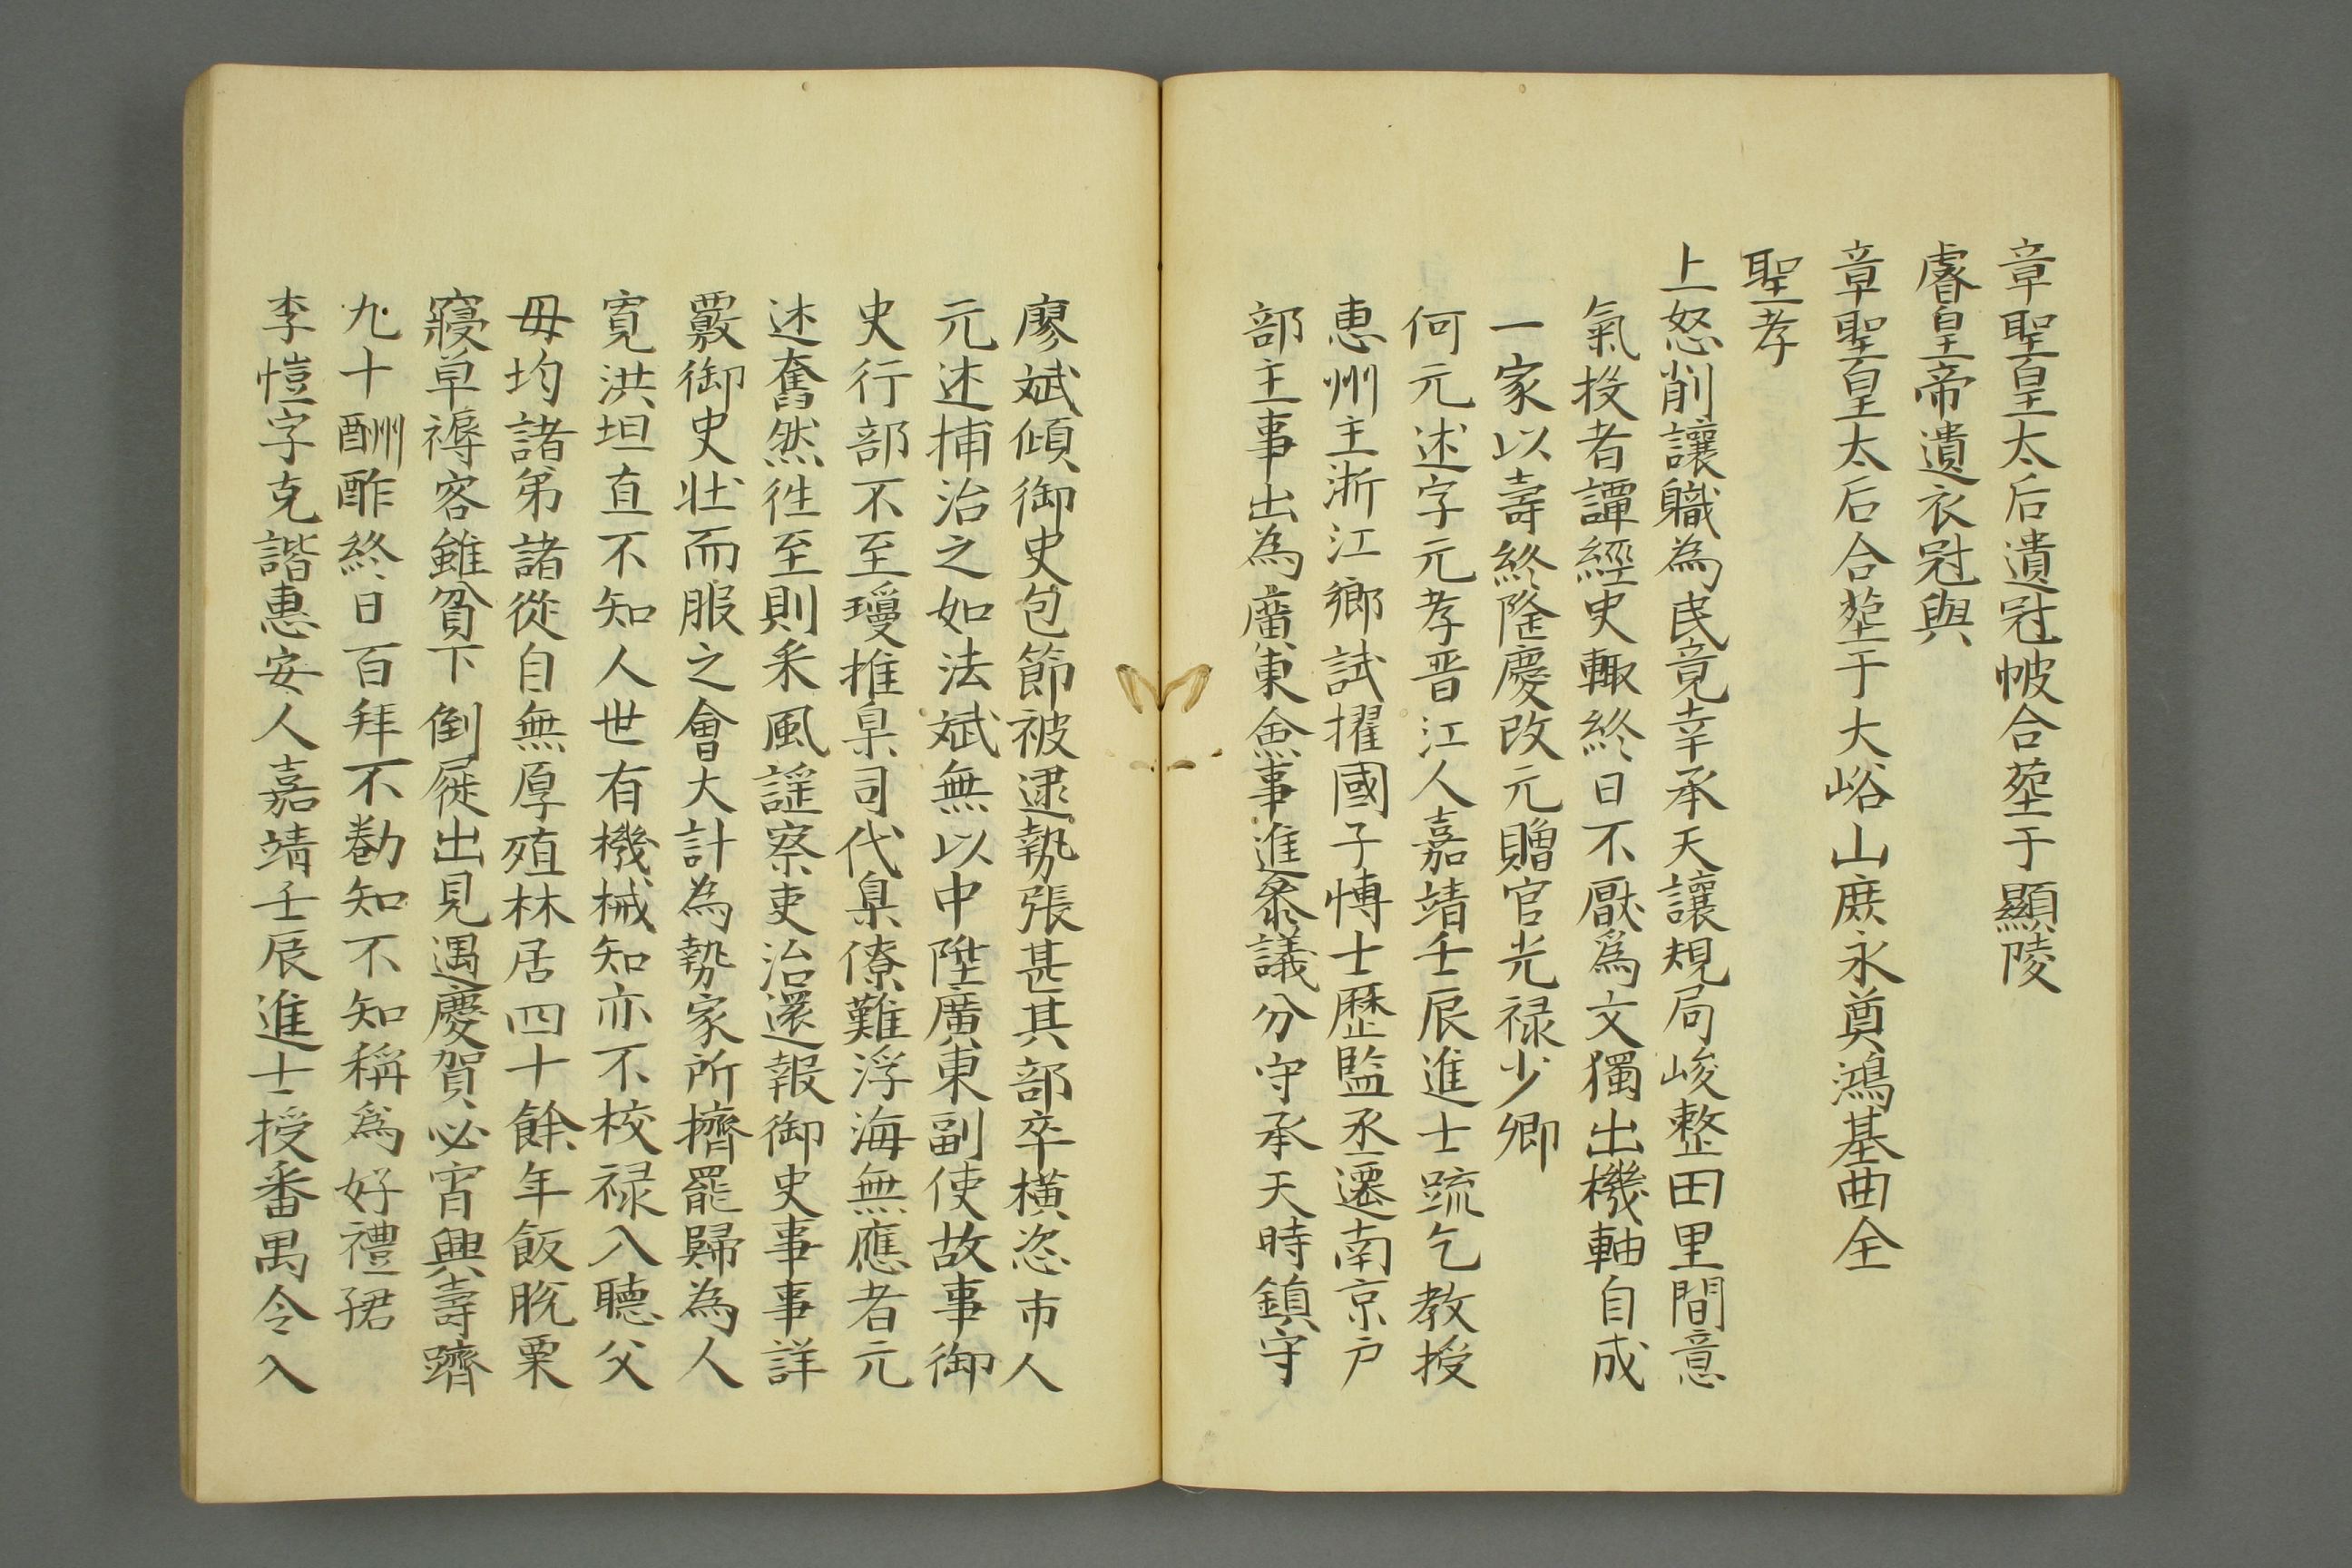 章聖皇太后遺冠帔合塟于顯陵
睿皇帝遺衣冠與
章聖皇太后合塟于大峪山庶永奠鴻基曲全
聖孝
上怒削讓職為民竟幸承天讓規局峻整田里間意
氣投者譚經史輙終日不厭爲文獨出機軸自成
一家以壽終隆慶改元贈官光禄少卿
何元述字元孝晉江人嘉靖壬辰進士疏乞教授
惠州主浙江鄉試擢國子博士歷監丞遷南京戸
部主事出為廣東僉事進叅議分守承天時鎮守
廖斌傾御史包節被逮勢張甚其部卒橫恣市人
元述捕治之如法斌無以中陞廣東副使故事御
史行部不至瓊推臬司代臬僚難浮海無應者元
述奮然徃至則釆風謡察吏治還報御史事事詳
覈御史壯而服之會大計為勢家所擠罷歸為人
寛洪坦直不知人世有機械知亦不校禄入聽父
毋均諸弟諸從自無厚殖林居四十餘年飯脫粟
寢草褥客雖貧下倒屣出見遇慶賀必宵興壽躋
九十酬酢終日百拜不勌知不知稱爲好禮
李愷字克諧惠安人嘉靖壬辰進士授番禺令入